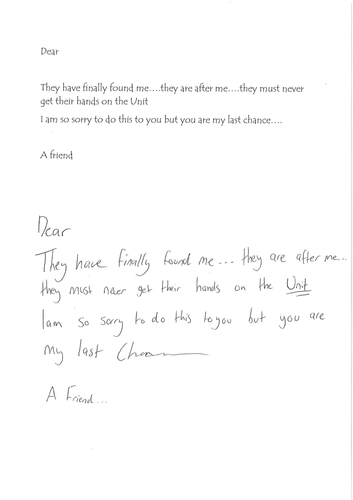 Dear
They have finally found me....they are after me....they must never
get their hands on the Unit
I am so sorry to do this to you but you are my last chance....
A friend
Dear
They have finally found me... they are after me...
they must never get their hands on the Unit
I am so sorry to do this to you but you are
my last
A Friend...